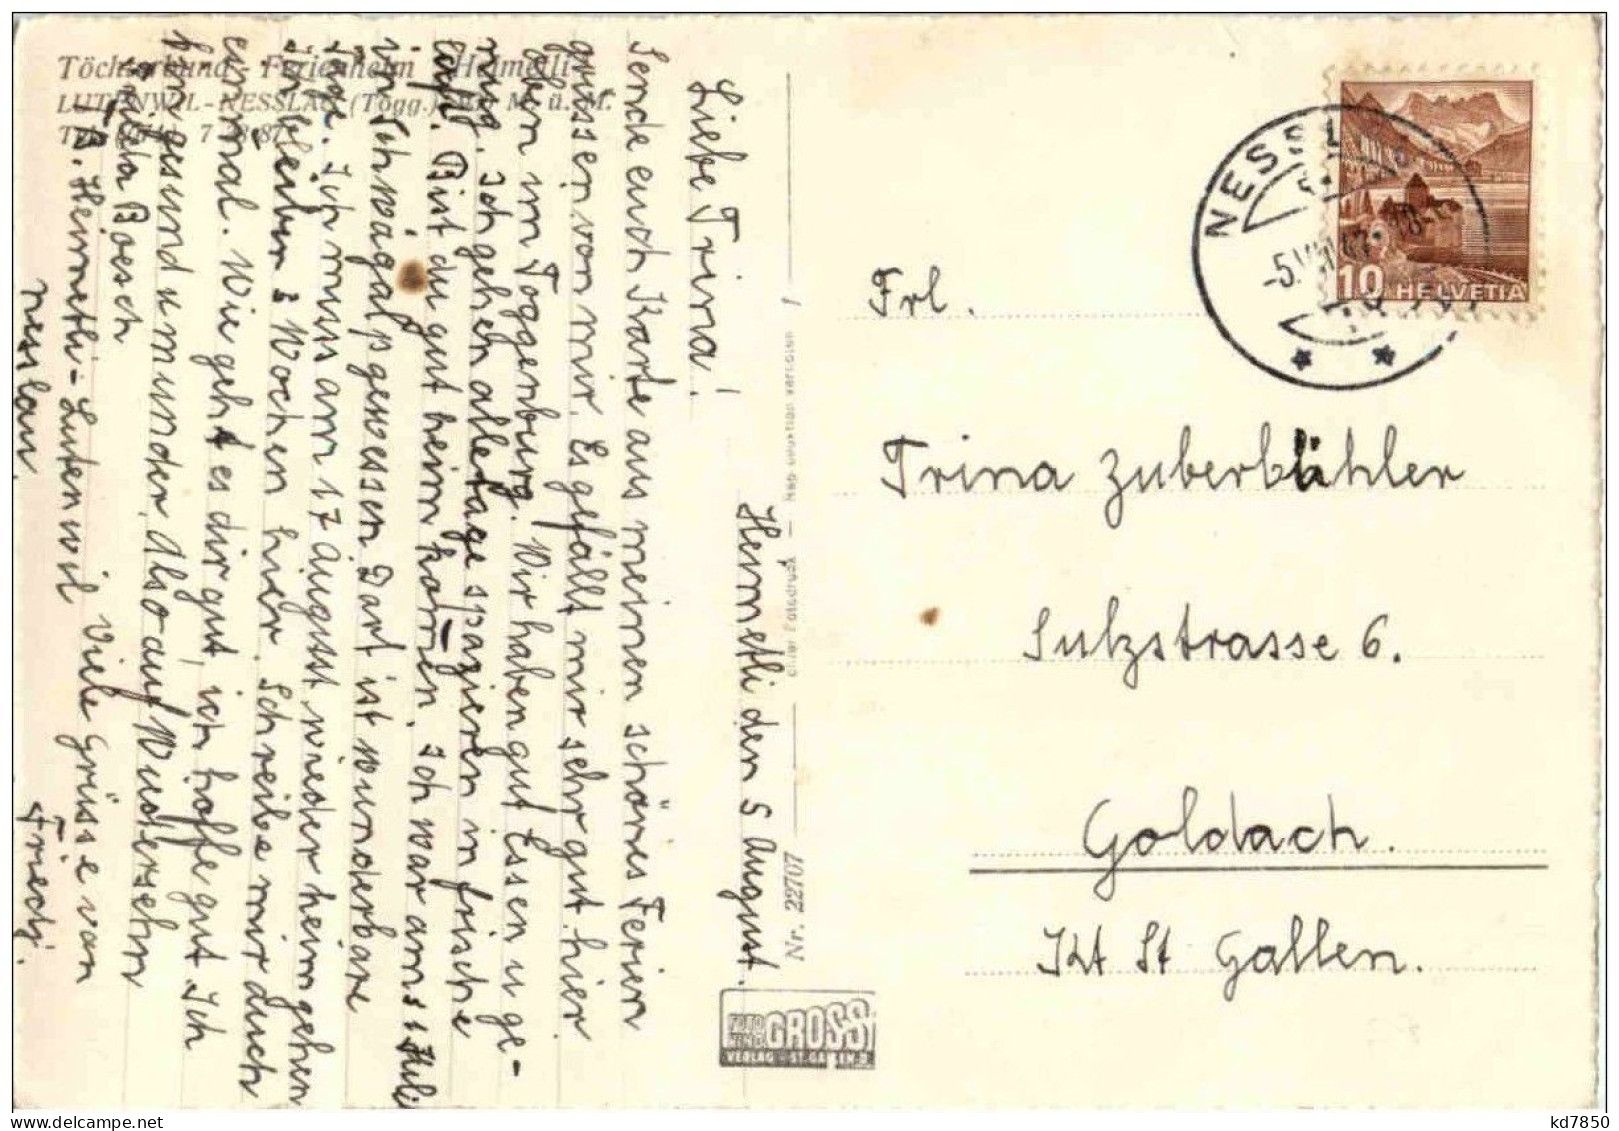 Töchterbund - Ferienheim Heimetli
LUTENWIL-NESSLAU (Togg.) M. ü. M.
Heimetli den 5 August.
Liebe Trina!
Sende euch Karte aus meinen schönes Ferien
grüssen von mir. Es gefällt mir sehr gut hier
oben im Toggenburg. Wir haben gut Essen u ge-
nug. Ich gehen alletage spazieren in frische
Luft. Bist du gut heim komen. Ich war am 1 Juli
in Schwägalp gewessen Dort ist wunderbare
Tage. Ich muss am 17 August wieder heim gehen
ich bleiben 3 Wochen hier. Schreibe mir duch
einmal. Wie geht es dir gut, ich hoffe gut Ich
bin gesund u munder, also auf Wiedersehn
Frieda Boesch
Viele Grüsse von
T.B. Heimetli - Lutenwil
Friedj.
Nesslau.
Nr. 22707
FOTO GROSS
VERLAG ST. GALLEN
NESSL
-5.VIII.47-18
10 HELVETIA
Frl.
Trina Zuberbühler
Sulzstrasse 6.
Goldach.
Kt St Gallen.
kd7850